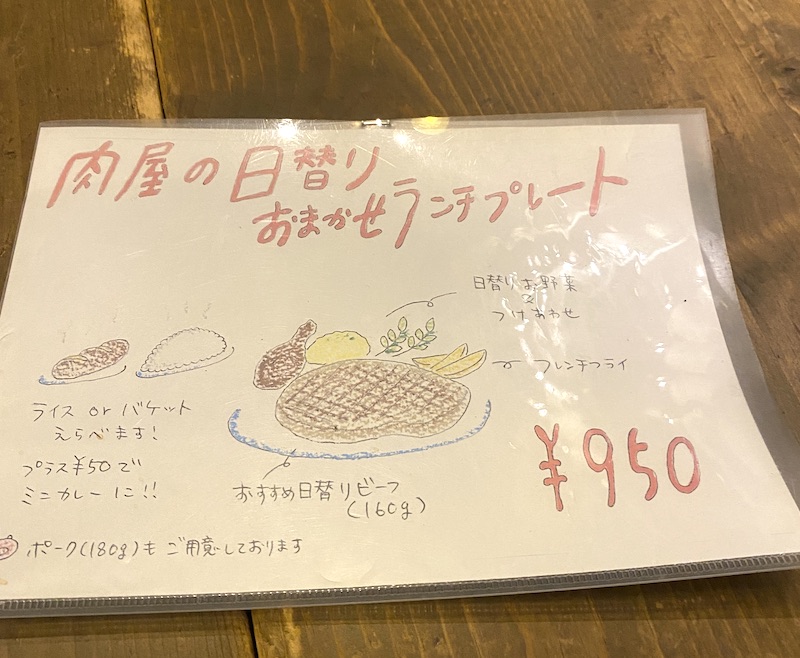 肉屋の日替り
おまかせランチプレート
日替りお野菜
&
つけあわせ
フレンチフライ
ライス or バケット
えらべます!
プラス¥50で
ミニカレーに!!
おすすめ日替りビーフ
(160g)
¥950
ポーク(180g)もご用意しております